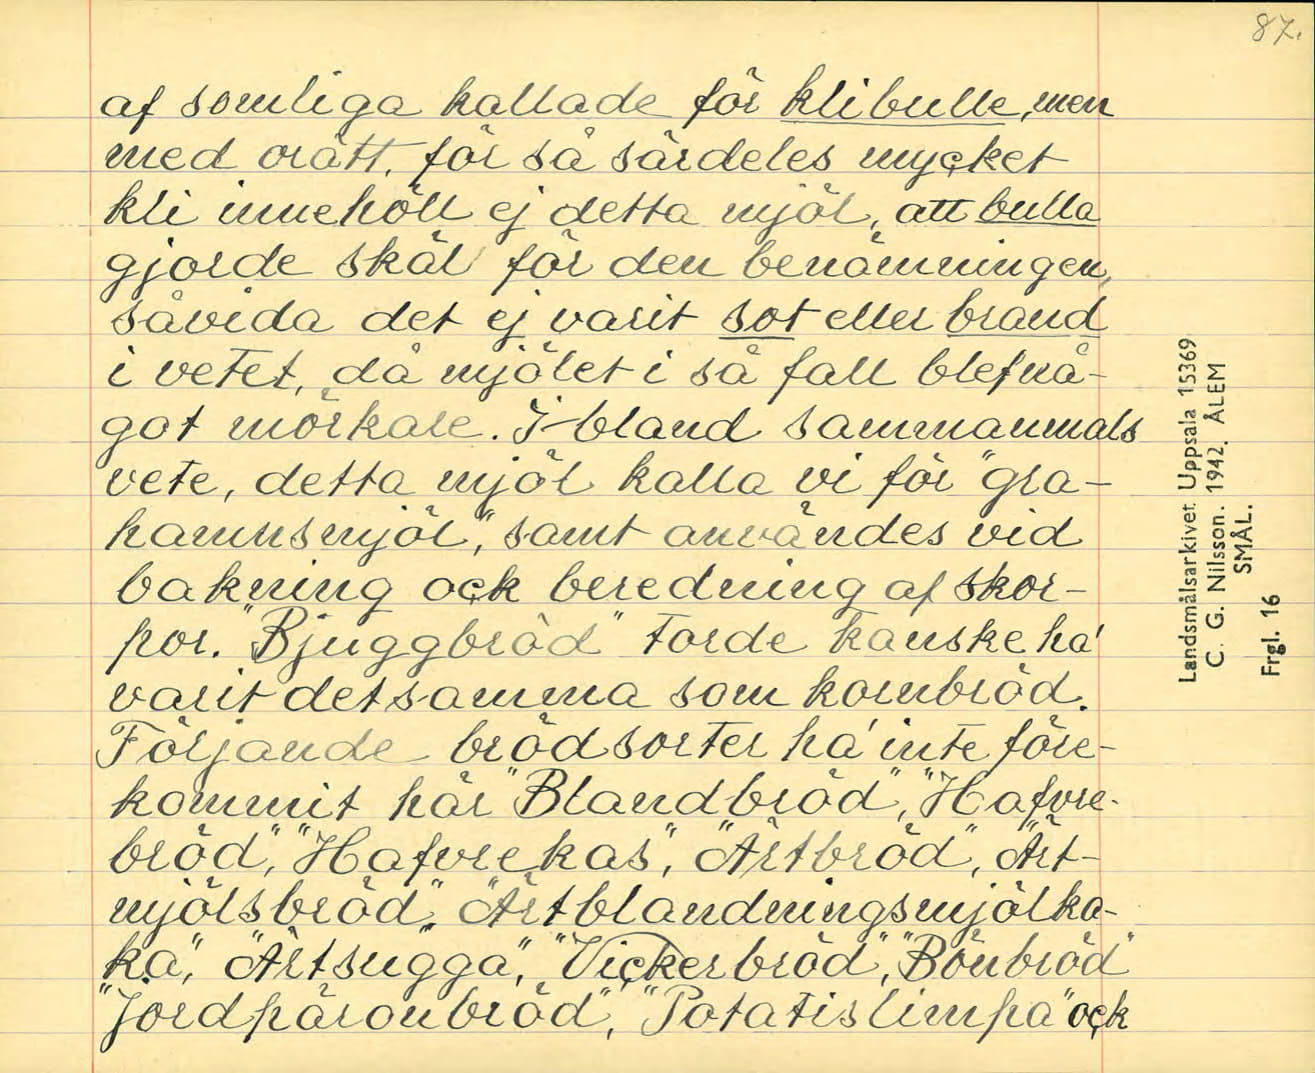 87.
af somliga kallade för klibulle, men
med orätt, för så särdeles mycket
kli innehöll ej detta mjöl, att bulla
gjorde skäl för den benämningen,
såvida det ej varit sot eller brand
i vetet, då mjölet i så fall blef nå-
got mörkare. I bland sammanmals
vete, detta mjöl kalla vi för "gra-
hammsmjöl", samt användes vid
bakning ock beredning af skor-
por. "Bjuggbröd" torde kanske ha'
varit detsamma som kornbröd.
Förjande brödsorter ha' inte före-
kommit här "Blandbröd", "Hafvre-
bröd", "Hafvrekas", "Ärtbröd", "Ärt-
mjölsbröd", "Ärtblandningsmjölka-
ka", "Ärtsugga", "Vickerbröd", "Bönbröd"
"Jordpäronbröd", "Potatislimpa" ock
Landsmålsarkivet Uppsala 15369
C. G. Nilsson. 1942. ÅLEM
SMÅL.
Frgl. 16